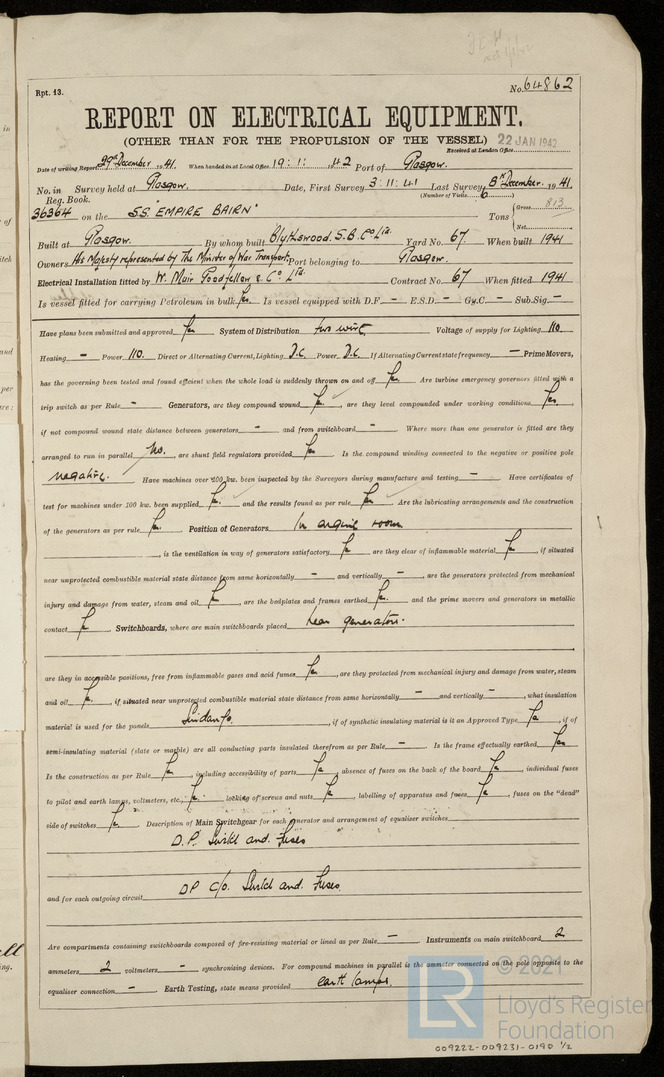 Rpt. 13.
No. 64862
REPORT ON ELECTRICAL EQUIPMENT.
(OTHER THAN FOR THE PROPULSION OF THE VESSEL)
22 JAN 1942
Received at London Office
Date of writing Report 29th December 1941. When handed in at Local Office 19:1:1942 Port of Glasgow.
No. in Survey held at Glasgow. Date, First Survey 3.11.41 Last Survey 8th December. 1941.
Reg. Book. (Number of Visits 6)
36364 on the S.S. "EMPIRE BAIRN" Tons { Gross 813
Net
Built at Glasgow. By whom built Blythswood. S.B. Co Ltd. Yard No. 67. When built 1941
Owners His Majesty represented by The Minister of War Transport. Port belonging to Glasgow.
Electrical Installation fitted by W. Muir Goodfellow & Co Ltd. Contract No. 67 When fitted 1941
Is vessel fitted for carrying Petroleum in bulk Yes. Is vessel equipped with D.F. – E.S.D. – Gy.C. – Sub.Sig –
Have plans been submitted and approved Yes System of Distribution two wire. Voltage of supply for Lighting 110.
Heating – Power 110. Direct or Alternating Current, Lighting D.C. Power D.C. If Alternating Current state frequency – Prime Movers,
has the governing been tested and found efficient when the whole load is suddenly thrown on and off Yes. Are turbine emergency governors fitted with a
trip switch as per Rule – Generators, are they compound wound Yes, are they level compounded under working conditions Yes,
if not compound wound state distance between generators – and from switchboard – Where more than one generator is fitted are they
arranged to run in parallel No., are shunt field regulators provided Yes Is the compound winding connected to the negative or positive pole
negative. Have machines over 100 kw. been inspected by the Surveyors during manufacture and testing – Have certificates of
test for machines under 100 kw. been supplied Yes. and the results found as per rule Yes. Are the lubricating arrangements and the construction
of the generators as per rule Yes. Position of Generators In engine room
, is the ventilation in way of generators satisfactory Yes are they clear of inflammable material Yes, if situated
near unprotected combustible material state distance from same horizontally – and vertically –, are the generators protected from mechanical
injury and damage from water, steam and oil Yes, are the bedplates and frames earthed Yes and the prime movers and generators in metallic
contact Yes Switchboards, where are main switchboards placed near generators.
are they in accessible positions, free from inflammable gases and acid fumes Yes, are they protected from mechanical injury and damage from water, steam
and oil Yes, if situated near unprotected combustible material state distance from same horizontally – and vertically –, what insulation
material is used for the panels Sindanyo., if of synthetic insulating material is it an Approved Type Yes, if of
semi-insulating material (slate or marble) are all conducting parts insulated therefrom as per Rule – Is the frame effectually earthed Yes
Is the construction as per Rule Yes, including accessibility of parts Yes, absence of fuses on the back of the board Yes, individual fuses
to pilot and earth lamps, voltmeters, etc. Yes, locking of screws and nuts Yes, labelling of apparatus and fuses Yes, fuses on the "dead"
side of switches Yes. Description of Main Switchgear for each generator and arrangement of equaliser switches
D.P. Switch and Fuses
and for each outgoing circuit DP C/o. Switch and Fuses.
Are compartments containing switchboards composed of fire-resisting material or lined as per Rule – Instruments on main switchboard 2
ammeters 2 voltmeters – synchronising devices. For compound machines in parallel is the ammeter connected on the pole opposite to the
equaliser connection – Earth Testing, state means provided earth lamps.
LR
© 2021
Lloyd's Register
Foundation
009222-009231-0190 1/2